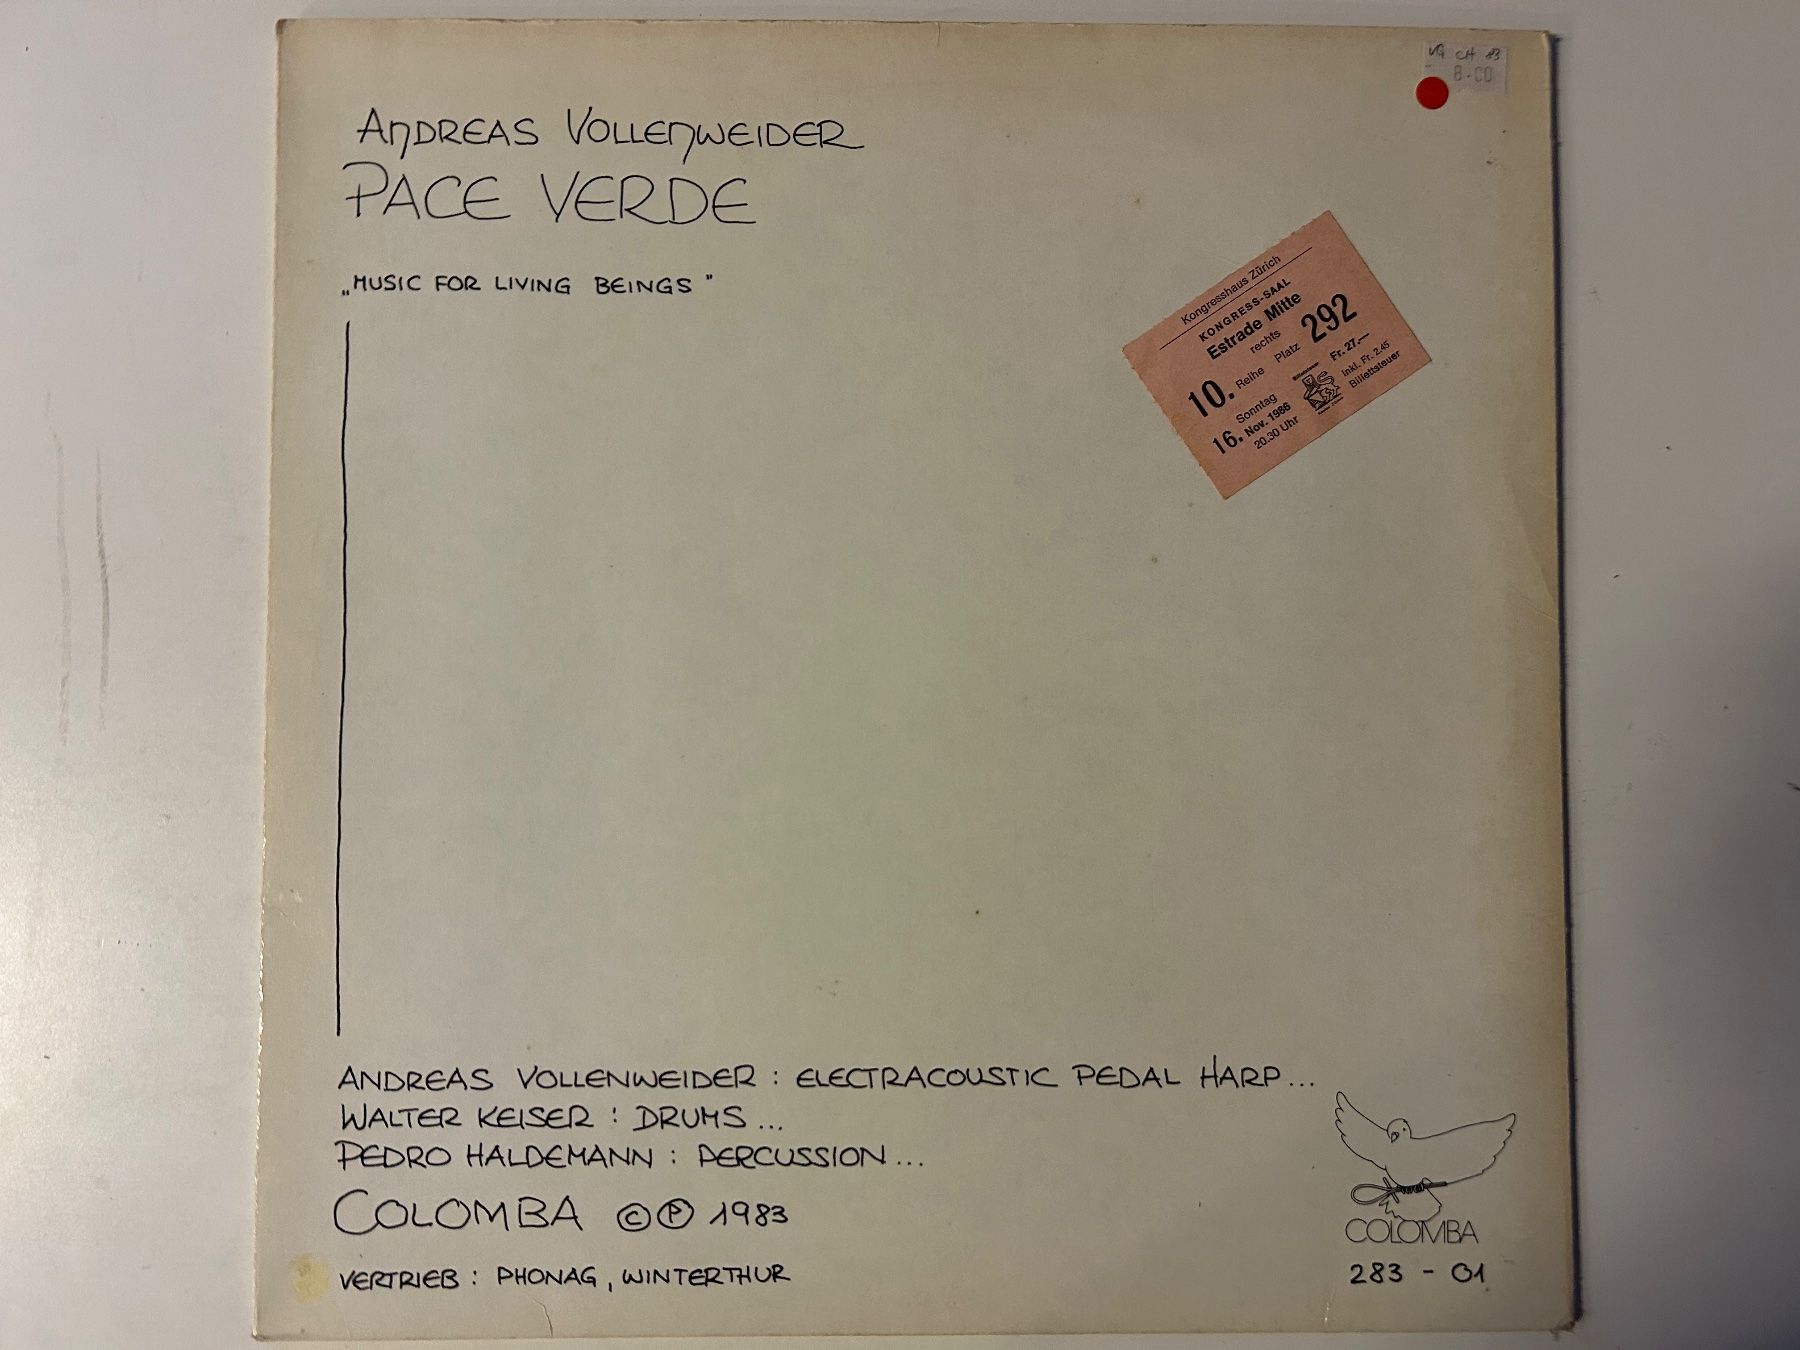 VG CH 83
8.00
ANDREAS VOLLENWEIDER
PACE VERDE
„MUSIC FOR LIVING BEINGS"
Kongresshaus Zürich
KONGRESS-SAAL
Estrade Mitte
rechts
10. Reihe Platz 292
Sonntag
16. Nov. 1986
20.30 Uhr
Fr. 27.—
inkl. Fr. 2.45
Billettsteuer
ANDREAS VOLLENWEIDER : ELECTRACOUSTIC PEDAL HARP...
WALTER KEISER : DRUMS ...
PEDRO HALDEMANN : PERCUSSION ...
COLOMBA © ℗ 1983
VERTRIEB : PHONAG, WINTERTHUR
COLOMBA
283 - 01